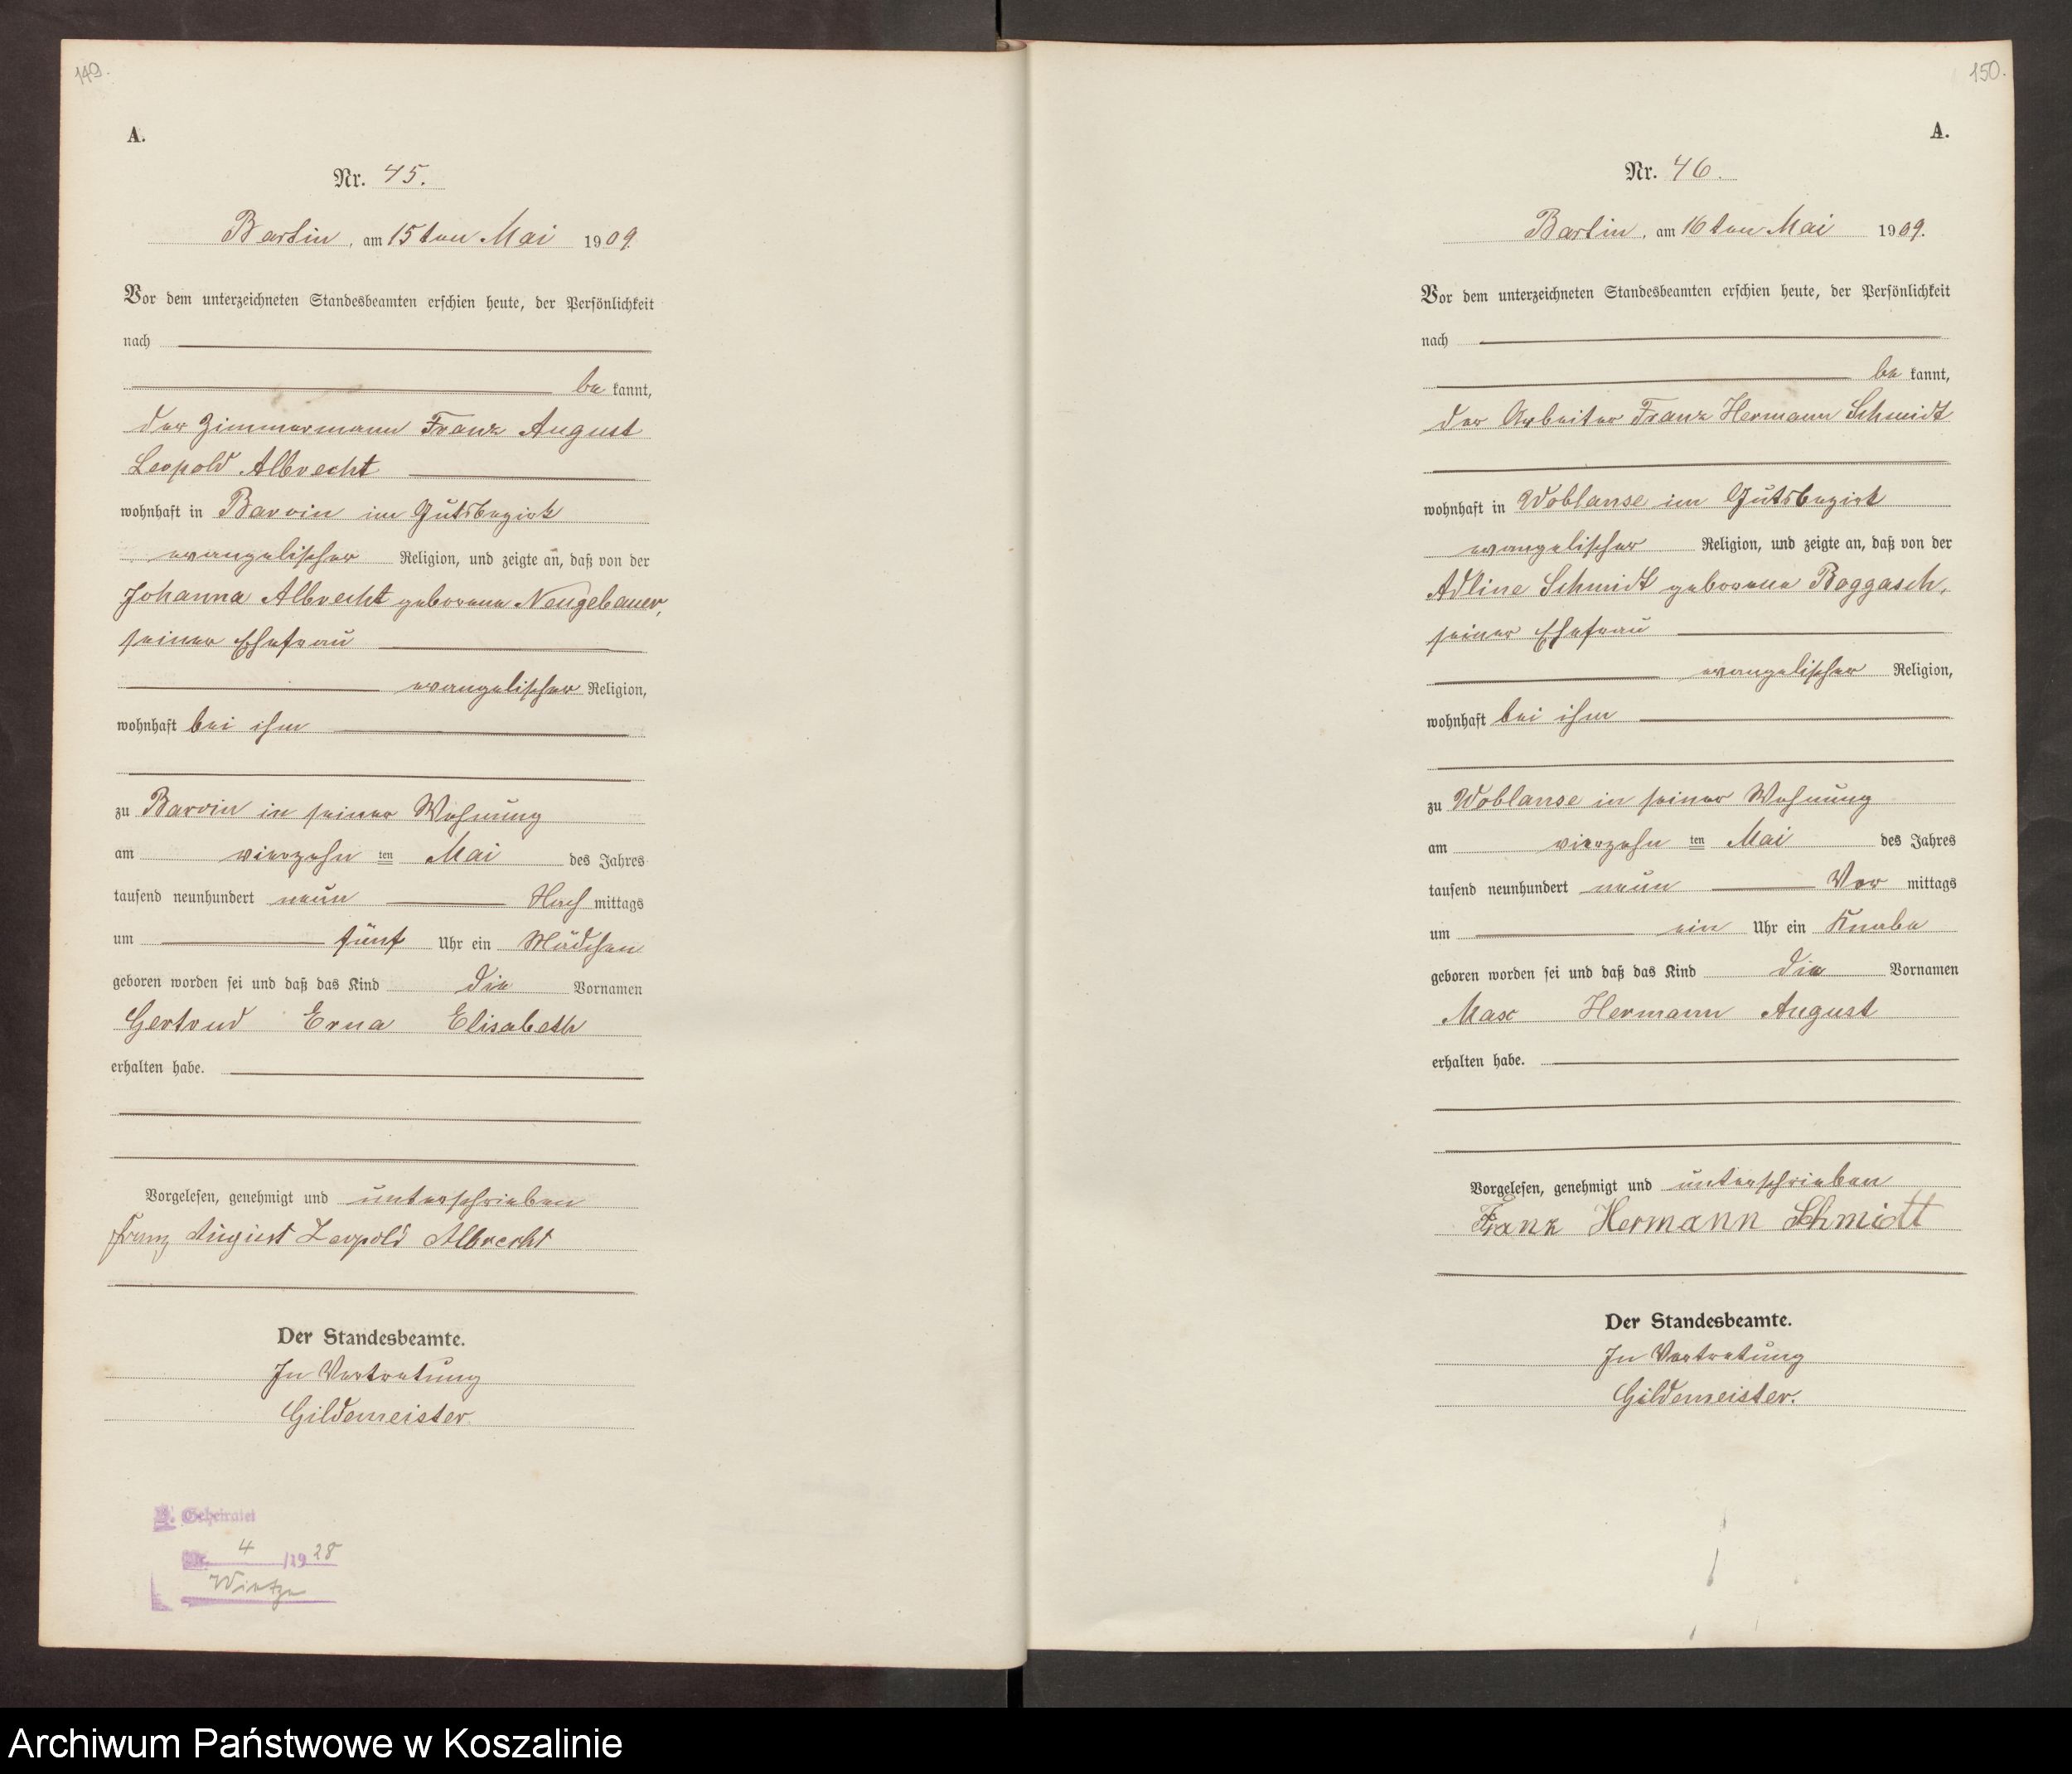 149.
A.
Nr. 45.
Bartin, am 15ten Mai 1909.
Vor dem unterzeichneten Standesbeamten erschien heute, der Persönlichkeit
nach
be kannt,
der Zimmermann Franz August
Leopold Albrecht
wohnhaft in Barvin im Gutsbezirk
evangelischer Religion, und zeigte an, daß von der
Johanna Albrecht geborene Neugebauer,
seiner Ehefrau
evangelischer Religion,
wohnhaft bei ihm
zu Barvin in seiner Wohnung
am vierzehn ten Mai des Jahres
tausend neunhundert neun Nach mittags
um fünf Uhr ein Mädchen
geboren worden sei und daß das Kind die Vornamen
Gertrud Erna Elisabeth
erhalten habe.
Vorgelesen, genehmigt und unterschrieben
Franz August Leopold Albrecht
Der Standesbeamte.
In Vertretung
Gildemeister.
Geheiratet
Nr. 4 /1928
150.
A.
Nr. 46.
Bartin, am 16ten Mai 1909.
Vor dem unterzeichneten Standesbeamten erschien heute, der Persönlichkeit
nach
be kannt,
der Arbeiter Franz Hermann Schmidt
wohnhaft in Woblanse im Gutsbezirk
evangelischer Religion, und zeigte an, daß von der
Adline Schmidt geborene Boggasch,
seiner Ehefrau
evangelischer Religion,
wohnhaft bei ihm
zu Woblanse in seiner Wohnung
am vierzehn ten Mai des Jahres
tausend neunhundert neun Vor mittags
um ein Uhr ein Knabe
geboren worden sei und daß das Kind die Vornamen
Max Hermann August
erhalten habe.
Vorgelesen, genehmigt und unterschrieben
Franz Hermann Schmidt
Der Standesbeamte.
In Vertretung
Gildemeister.
Archiwum Państwowe w Koszalinie